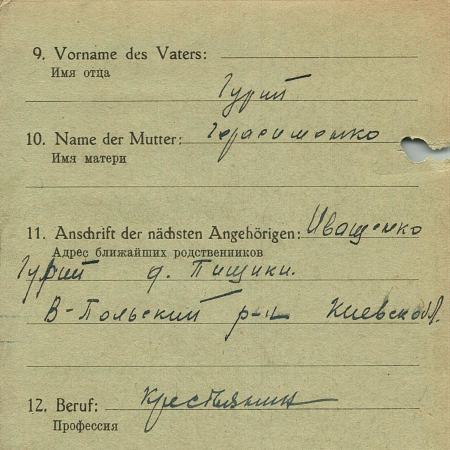 9. Vorname des Vaters:
Имя отца
Гурий
10. Name der Mutter: Герасименко
Имя матери
11. Anschrift der nächsten Angehörigen: Иващенко
Адрес ближайших родственников
Гурий д. Пищики.
В-Польский р-н Киевск обл.
12. Beruf: Крестьянин
Профессия